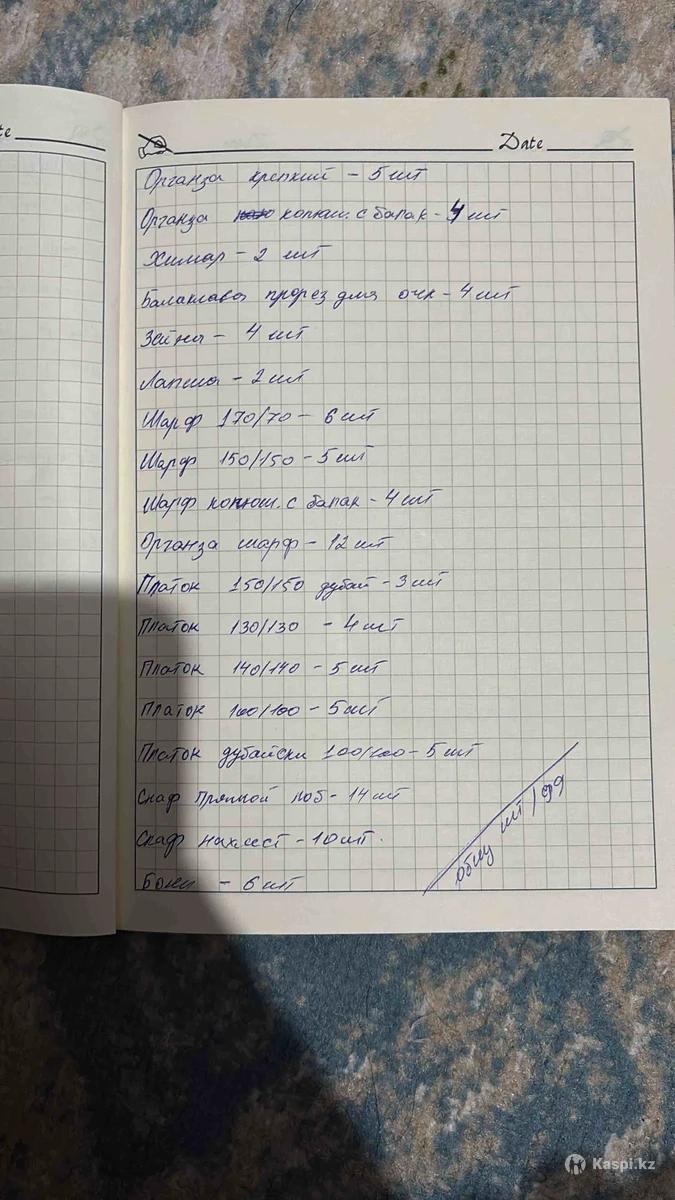 te
Date
Органза крепкий - 5 шт
Органза капюш. с балак - 4 шт
Химар - 2 шт
Балаклава прорез для очк - 4 шт
Зейна - 4 шт
Лапша - 2 шт
Шарф 170/70 - 6 шт
Шарф 150/150 - 5 шт
Шарф капюш. с балак - 4 шт
Органза шарф - 12 шт
Платок 150/150 дубай - 3 шт
Платок 130/130 - 4 шт
Платок 140/140 - 5 шт
Платок 100/100 - 5 шт
Платок дубайски 100/100 - 5 шт
Скаф прямой лоб - 14 шт
Скаф нахлест - 10 шт.
Бони - 6 шт
общ шт / 99
Kaspi.kz